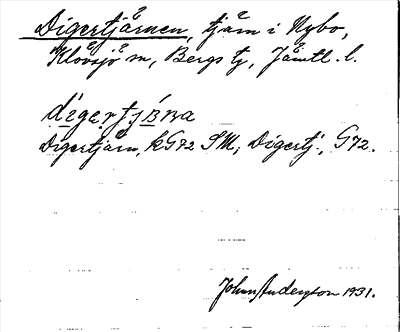 Digertjärnen, tjärn i Nybo,
Klövsjö sn, Bergs tg, Jämtl. l.
dìgertjɐ̀ṇa
Digertjärn, kG72 SM; Digertj., G72.
Johan Anderson 1931.